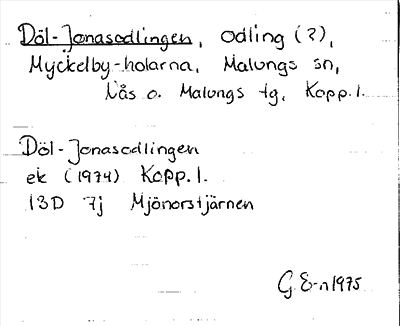 Döl-Jonasodlingen, odling (?),
Myckelby-holarna, Malungs sn,
Nås o. Malungs tg, Kopp. l.
Döl-Jonasodlingen
ek (1974) Kopp. l.
13D 7j Mjönorstjärnen
G. E-n 1975